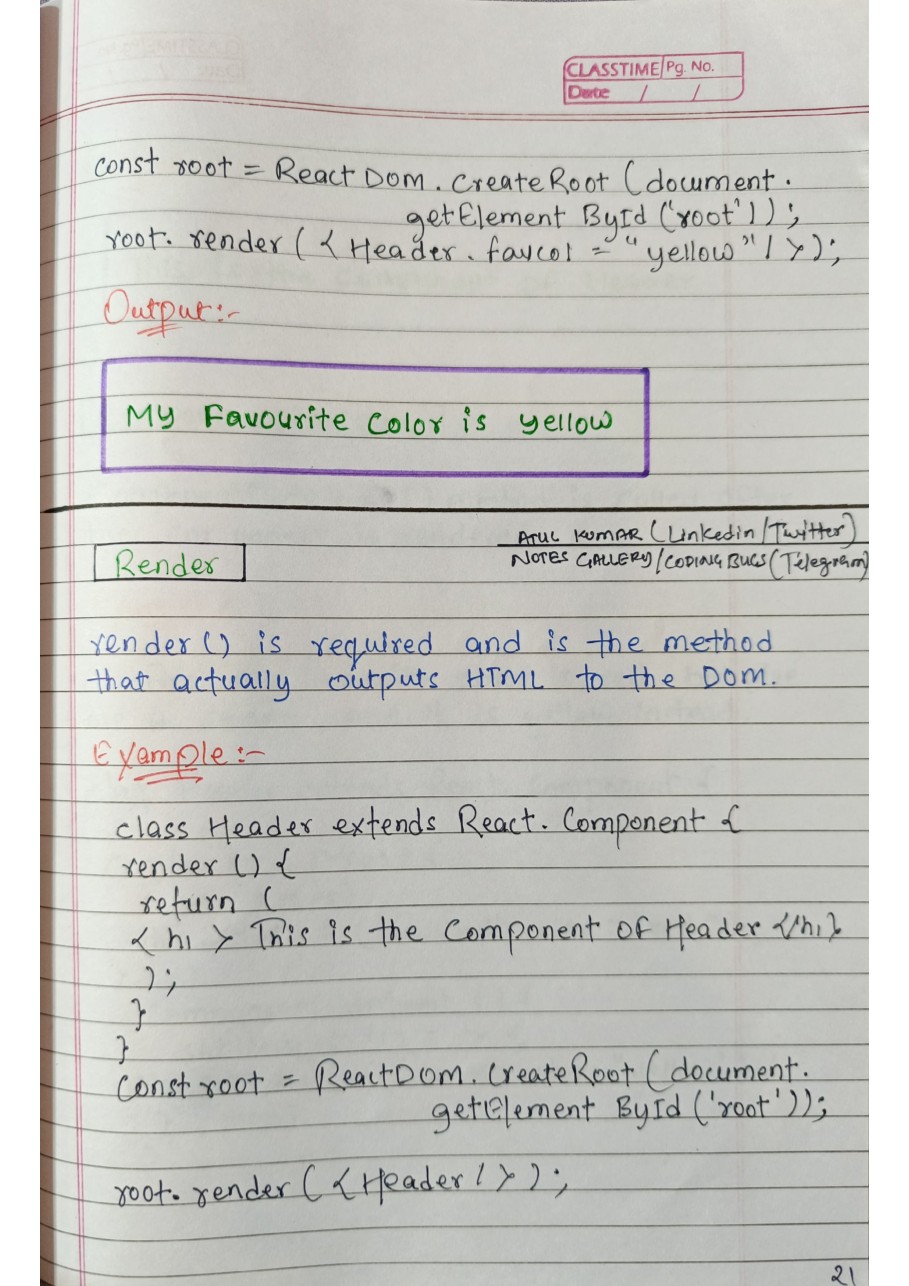 CLASSTIME Pg. No.
Date / /
const root = React Dom. Create Root (document.
getElement ById ('root'));
root. render (<Header. favcol = "yellow" />);
Output:-
My Favourite Color is yellow
ATUL KUMAR (Linkedin/Twitter)
NOTES GALLERY/CODING BUGS (Telegram)
Render
render () is required and is the method
that actually outputs HTML to the DOM.
Example:-
class Header extends React. Component {
render () {
return (
<h1> This is the Component of Header </h1>
);
}
}
Const root = ReactDOM. CreateRoot (document.
getElement ById ('root'));
root. render (<Header />);
21